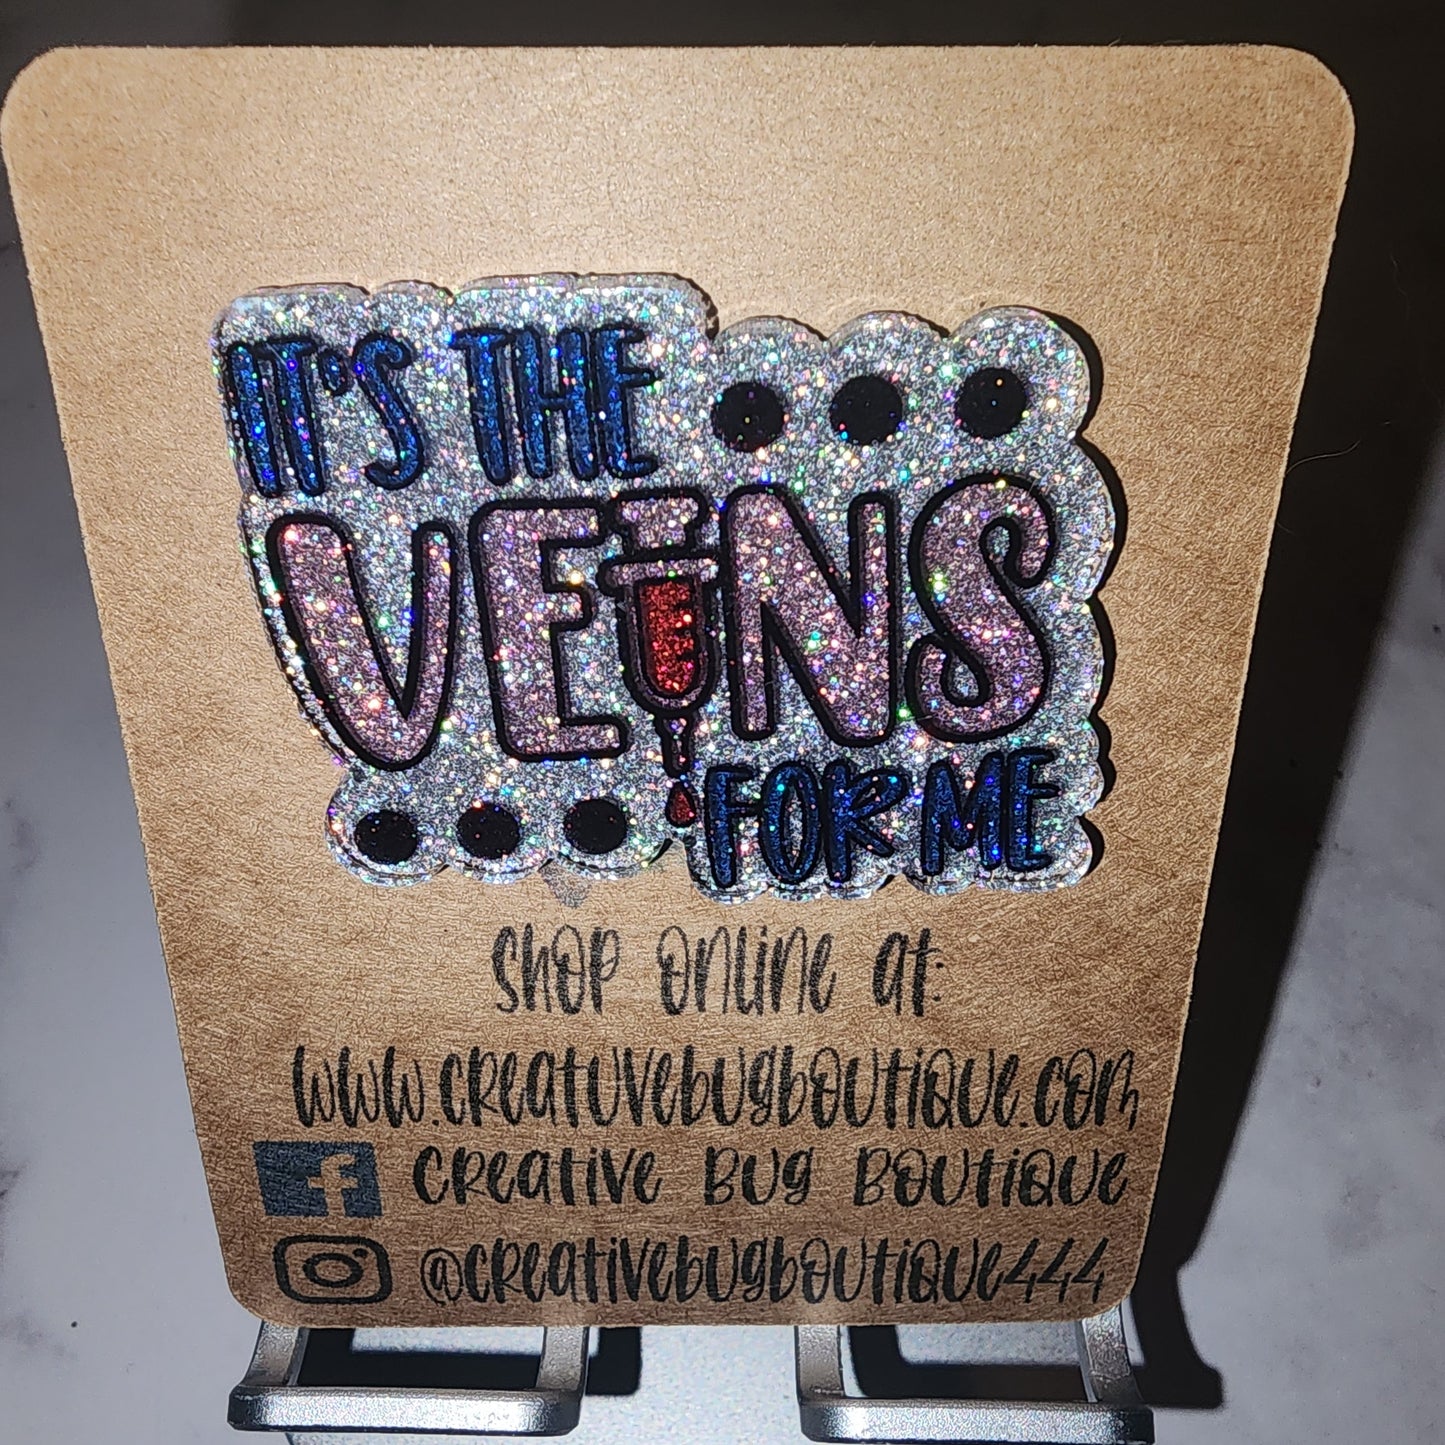 IT'S THE
VEINS
FOR ME
SHOP ONLINE at:
www.creatuvebugboutique.com
f creative Bug Boutique
@creativebugboutique444